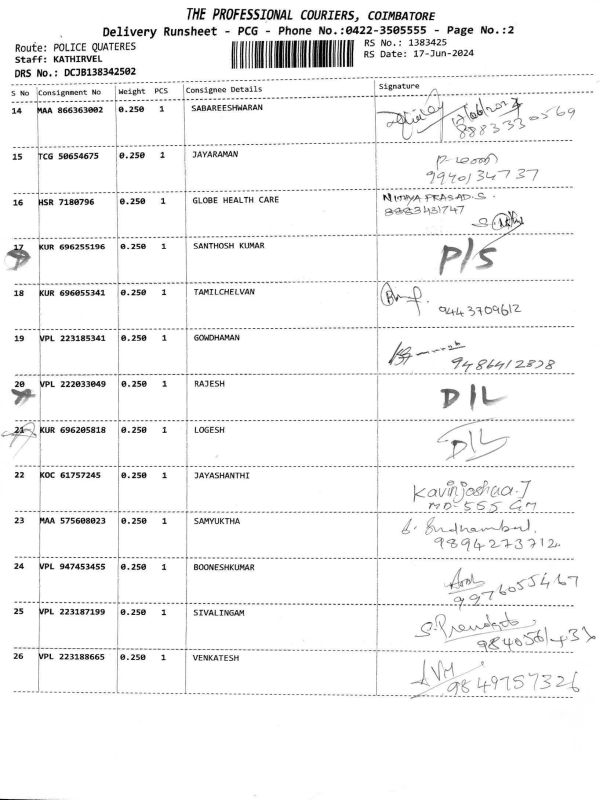 THE PROFESSIONAL COURIERS, COIMBATORE
Delivery Runsheet - PCG - Phone No.:0422-3505555 - Page No.:2
Route: POLICE QUATERES
RS No.: 1383425
Staff: KATHIRVEL
RS Date: 17-Jun-2024
DRS No.: DCJB138342502
S No Consignment No Weight PCS Consignee Details Signature
14 MAA 866363002 0.250 1 SABAREESHWARAN
8883330569
15 TCG 50654675 0.250 1 JAYARAMAN
9940134737
16 HSR 7180796 0.250 1 GLOBE HEALTH CARE NITHYA PRASAD.S.
8883431747
17 KUR 696255196 0.250 1 SANTHOSH KUMAR P/S
18 KUR 696055341 0.250 1 TAMILCHELVAN
9443709612
19 VPL 223185341 0.250 1 GOWDHAMAN
9486412878
20 VPL 222033049 0.250 1 RAJESH D/L
21 KUR 696205818 0.250 1 LOGESH D/L
22 KOC 61757245 0.250 1 JAYASHANTHI
Kavinjoshaa.J
MD-555 GM
23 MAA 575608023 0.250 1 SAMYUKTHA
9894273712
24 VPL 947453455 0.250 1 BOONESHKUMAR
9976055467
25 VPL 223187199 0.250 1 SIVALINGAM
26 VPL 223188665 0.250 1 VENKATESH
AVM
9849757326